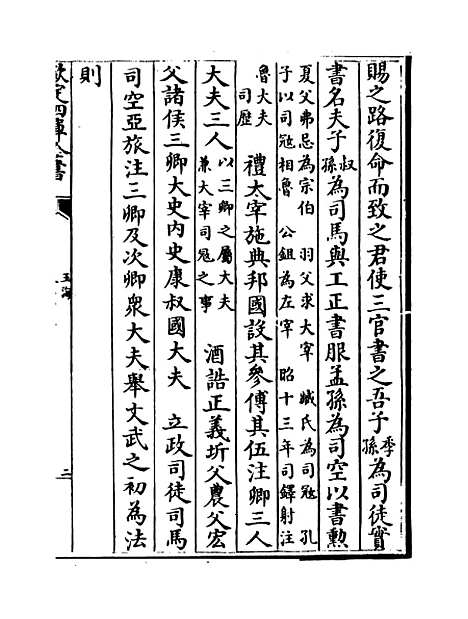 賜之路復命而致之君使三官書之吾子季孫為司徒實
書名夫子叔孫為司馬與工正書服孟孫為司空以書勲
夏父弗忌為宗伯　羽父求大宰　臧氏為司冦　孔
子以司冦相魯　公鉏為左宰　昭十三年司鐸射注
魯大夫
司歴
禮太宰施典邦國設其參傅其伍注卿三人
大夫三人以三卿之屬大夫
兼大宰司冦之事
酒誥正義圻父農父宏
父諸侯三卿大史内史康叔國大夫　立政司徒司馬
司空亞旅注三卿及次卿衆大夫舉文武之初為法
則
欽定四庫全書
玉海
三